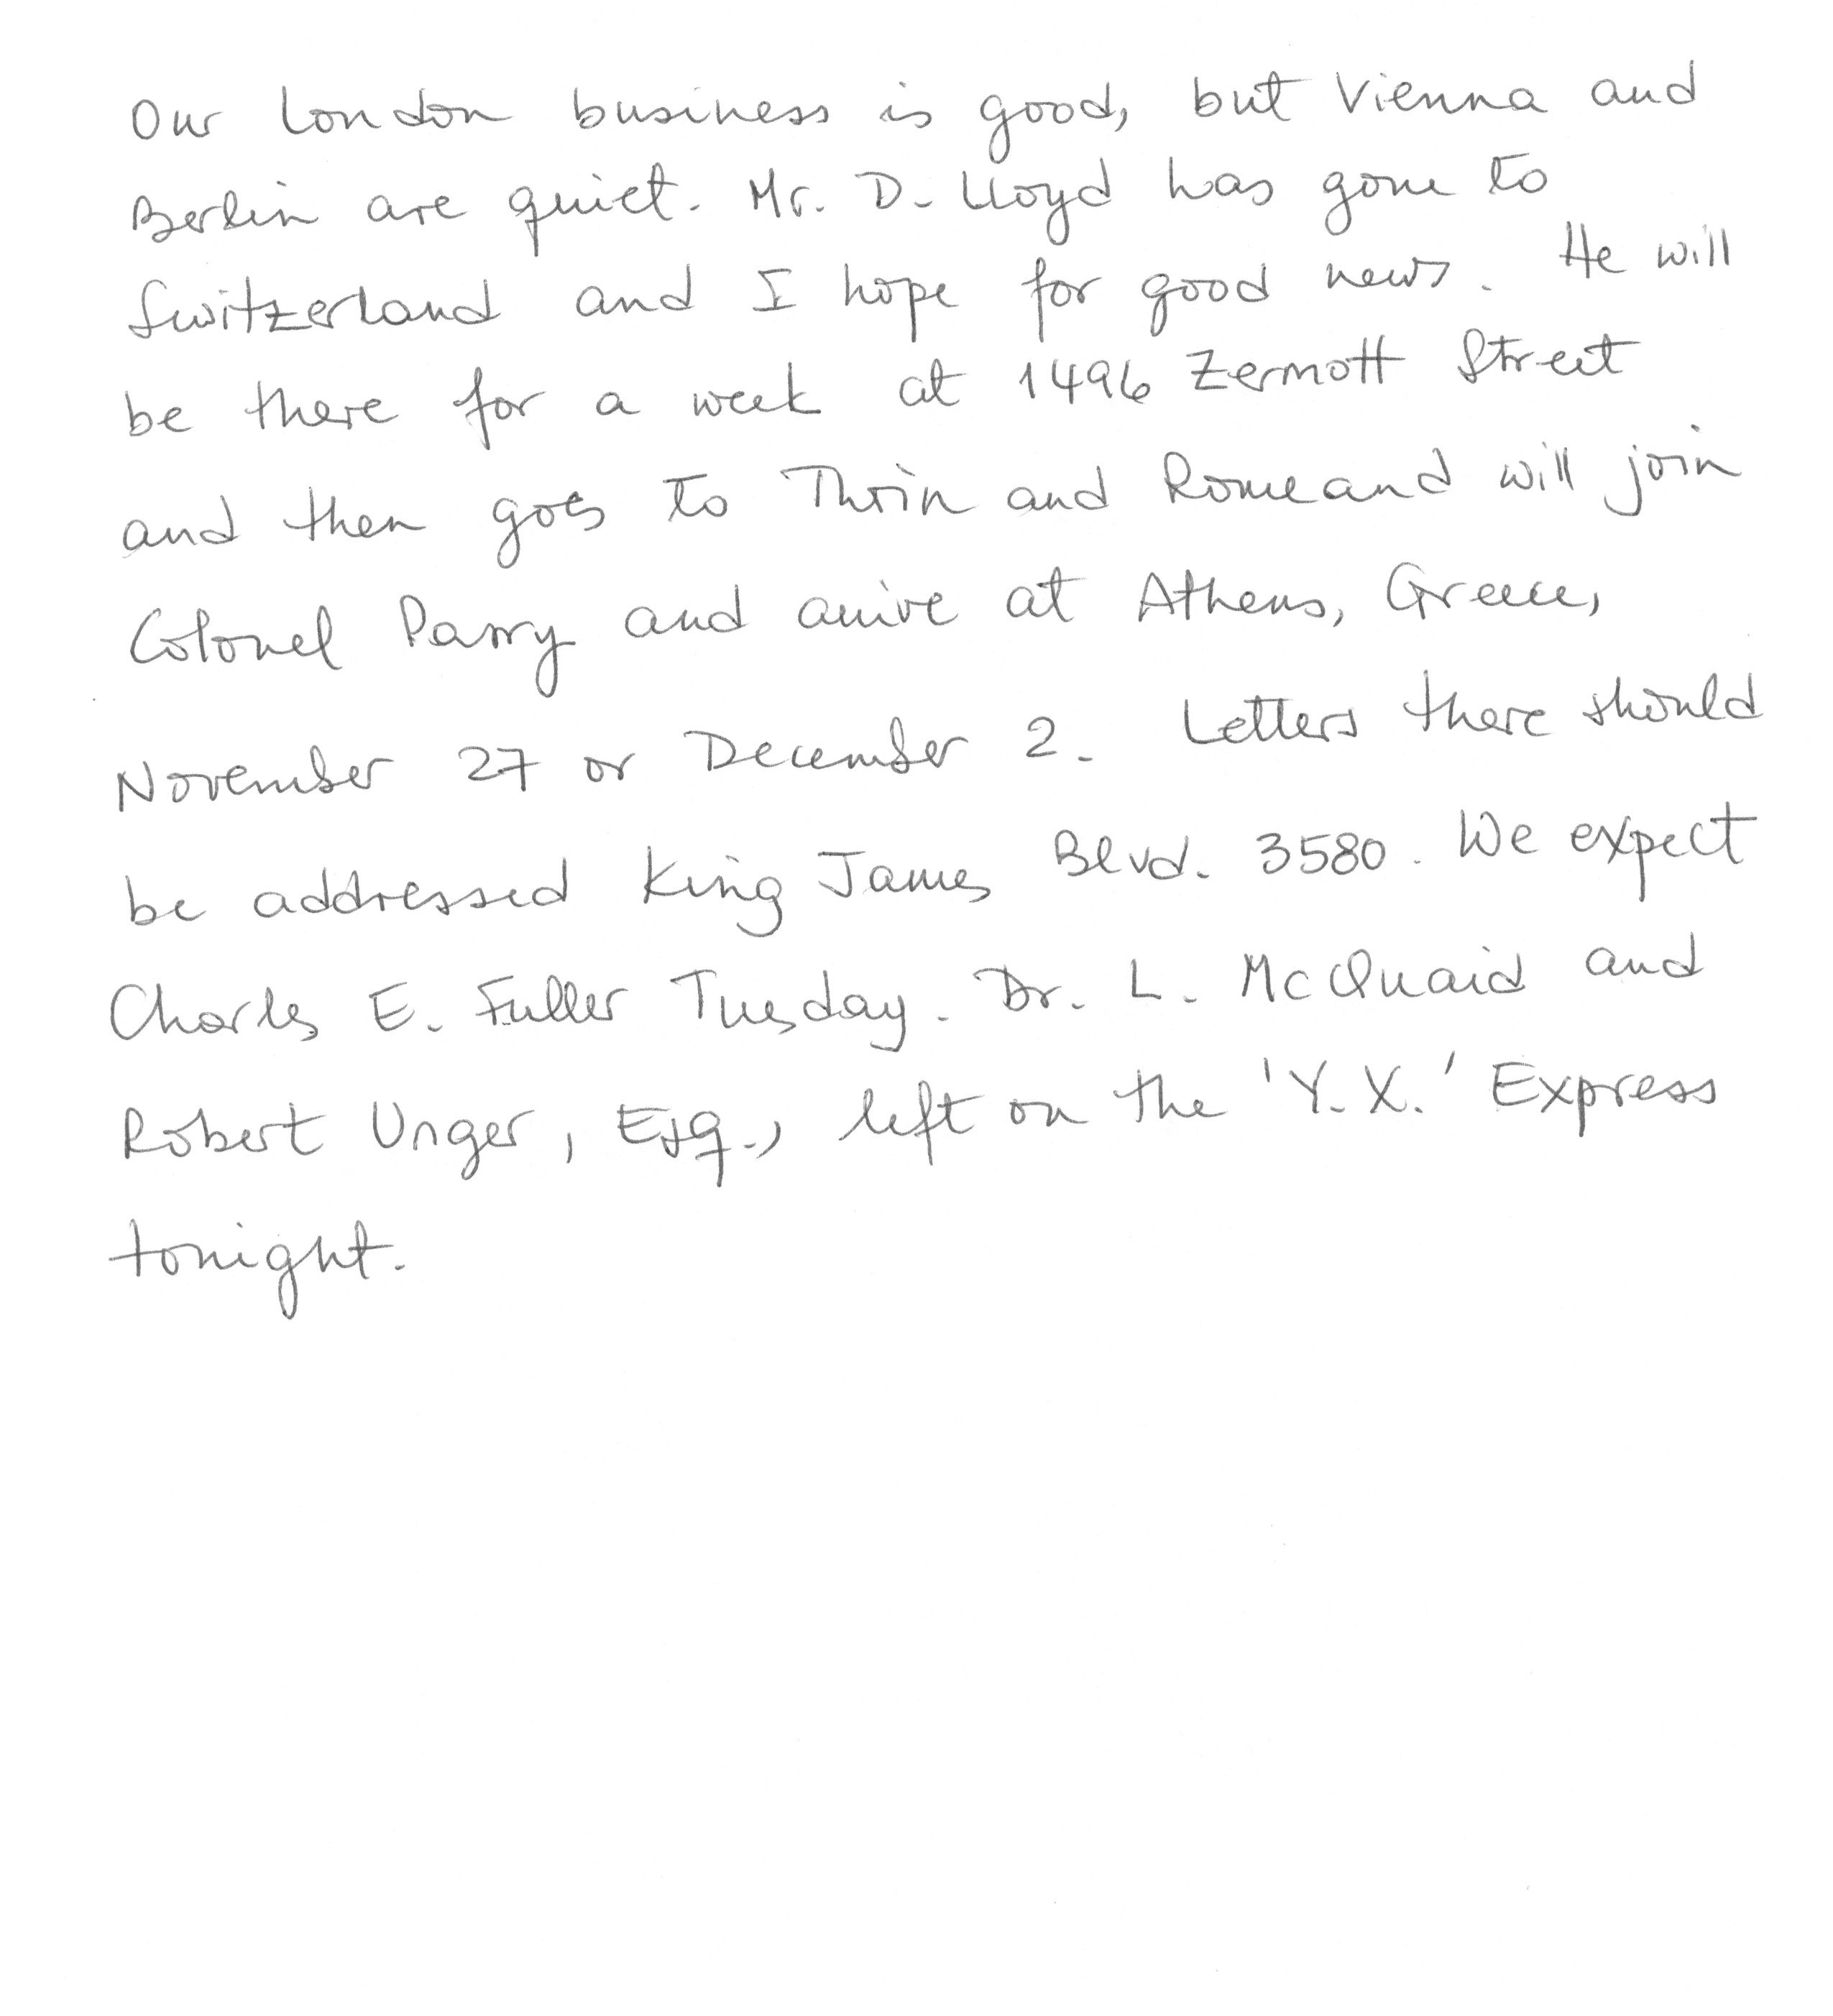 Our London business is good, but Vienna and
Berlin are quiet. Mr. D. Lloyd has gone to
Switzerland and I hope for good news. He will
be there for a week at 1496 Zermott Street
and then goes to Turin and Rome and will join
Colonel Parry and arrive at Athens, Greece,
November 27 or December 2. Letters there should
be addressed King James Blvd. 3580. We expect
Charles E. Fuller Tuesday. Dr. L. McQuaid and
Robert Unger, Esq., left on the 'Y.X.' Express
tonight.